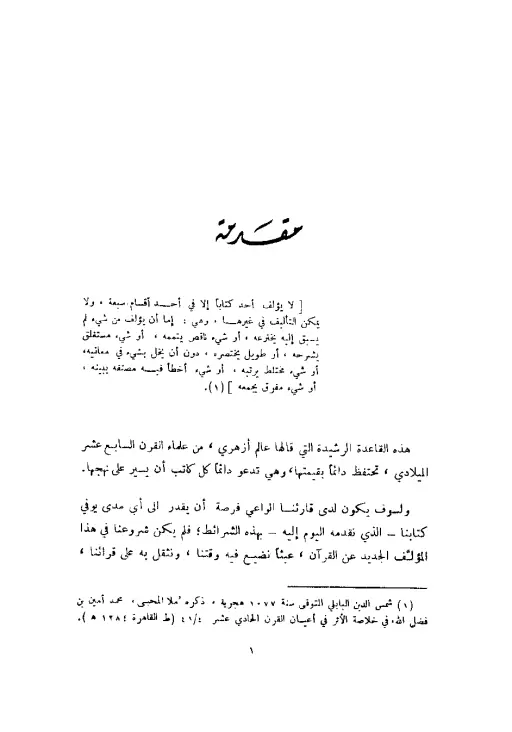 مقدمة
[ لا يؤلف أحد كتاباً إلا في أحد أقسام سبعة ، ولا
يمكن التأليف في غيرها ، وهي : إما أن يؤلف من شيء لم
يسبق إليه يخترعه ، أو شيء ناقص يتممه ، أو شيء مستغلق
يشرحه ، أو طويل يختصره ، دون أن يخل بشيء في معانيه،
أو شيء مختلط يرتبه ، أو شيء أخطأ فيه مصنفه يبينه ،
أو شيء مفرق يجمعه ] (١).
هذه القاعدة الرشيدة التي قالها عالم أزهري ، من علماء القرن السابع عشر
الميلادي ، تحتفظ دائماً بقيمتها، وهي تدعو دائماً كل كاتب أن يسير على نهجها.
ولسوف يكون لدى قارئنا الواعي فرصة أن يقدر الى أي مدى يوفي
كتابنا – الذي نقدمه اليوم إليه – بهذه الشرائط؛ فلم يكن شروعنا في هذا
المؤلَّف الجديد عن القرآن ، عبثاً نضيع فيه وقتنا ، ونثقل به على قرائنا ،
(١) شمس الدين البابلي المتوفى سنة ١٠٧٧ هجرية ، ذكره ملا المحبى ، محمد أمين بن
فضل الله، في خلاصة الأثر في أعيان القرن الحادي عشر ٤١/٤ (ط القاهرة ١٢٨٤ ه ).
١